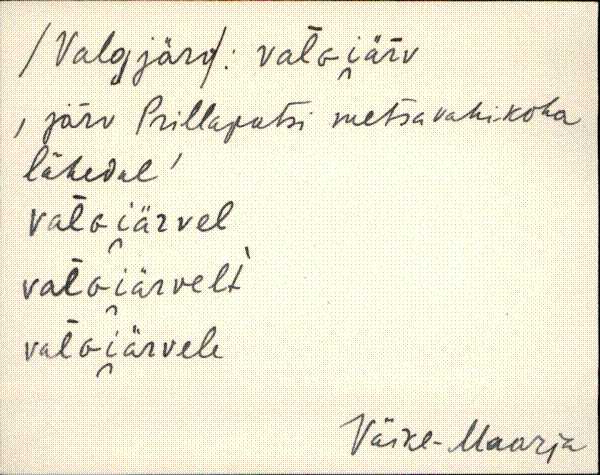 /Valgjärv/: val̄Gi̯ärv
, järv Prillapatsi metsavahikoha
lähedal'
val̄Gi̯ärvel
val̄Gi̯ärvelt̀
val̄Gi̯ärvele
Väike-Maarja